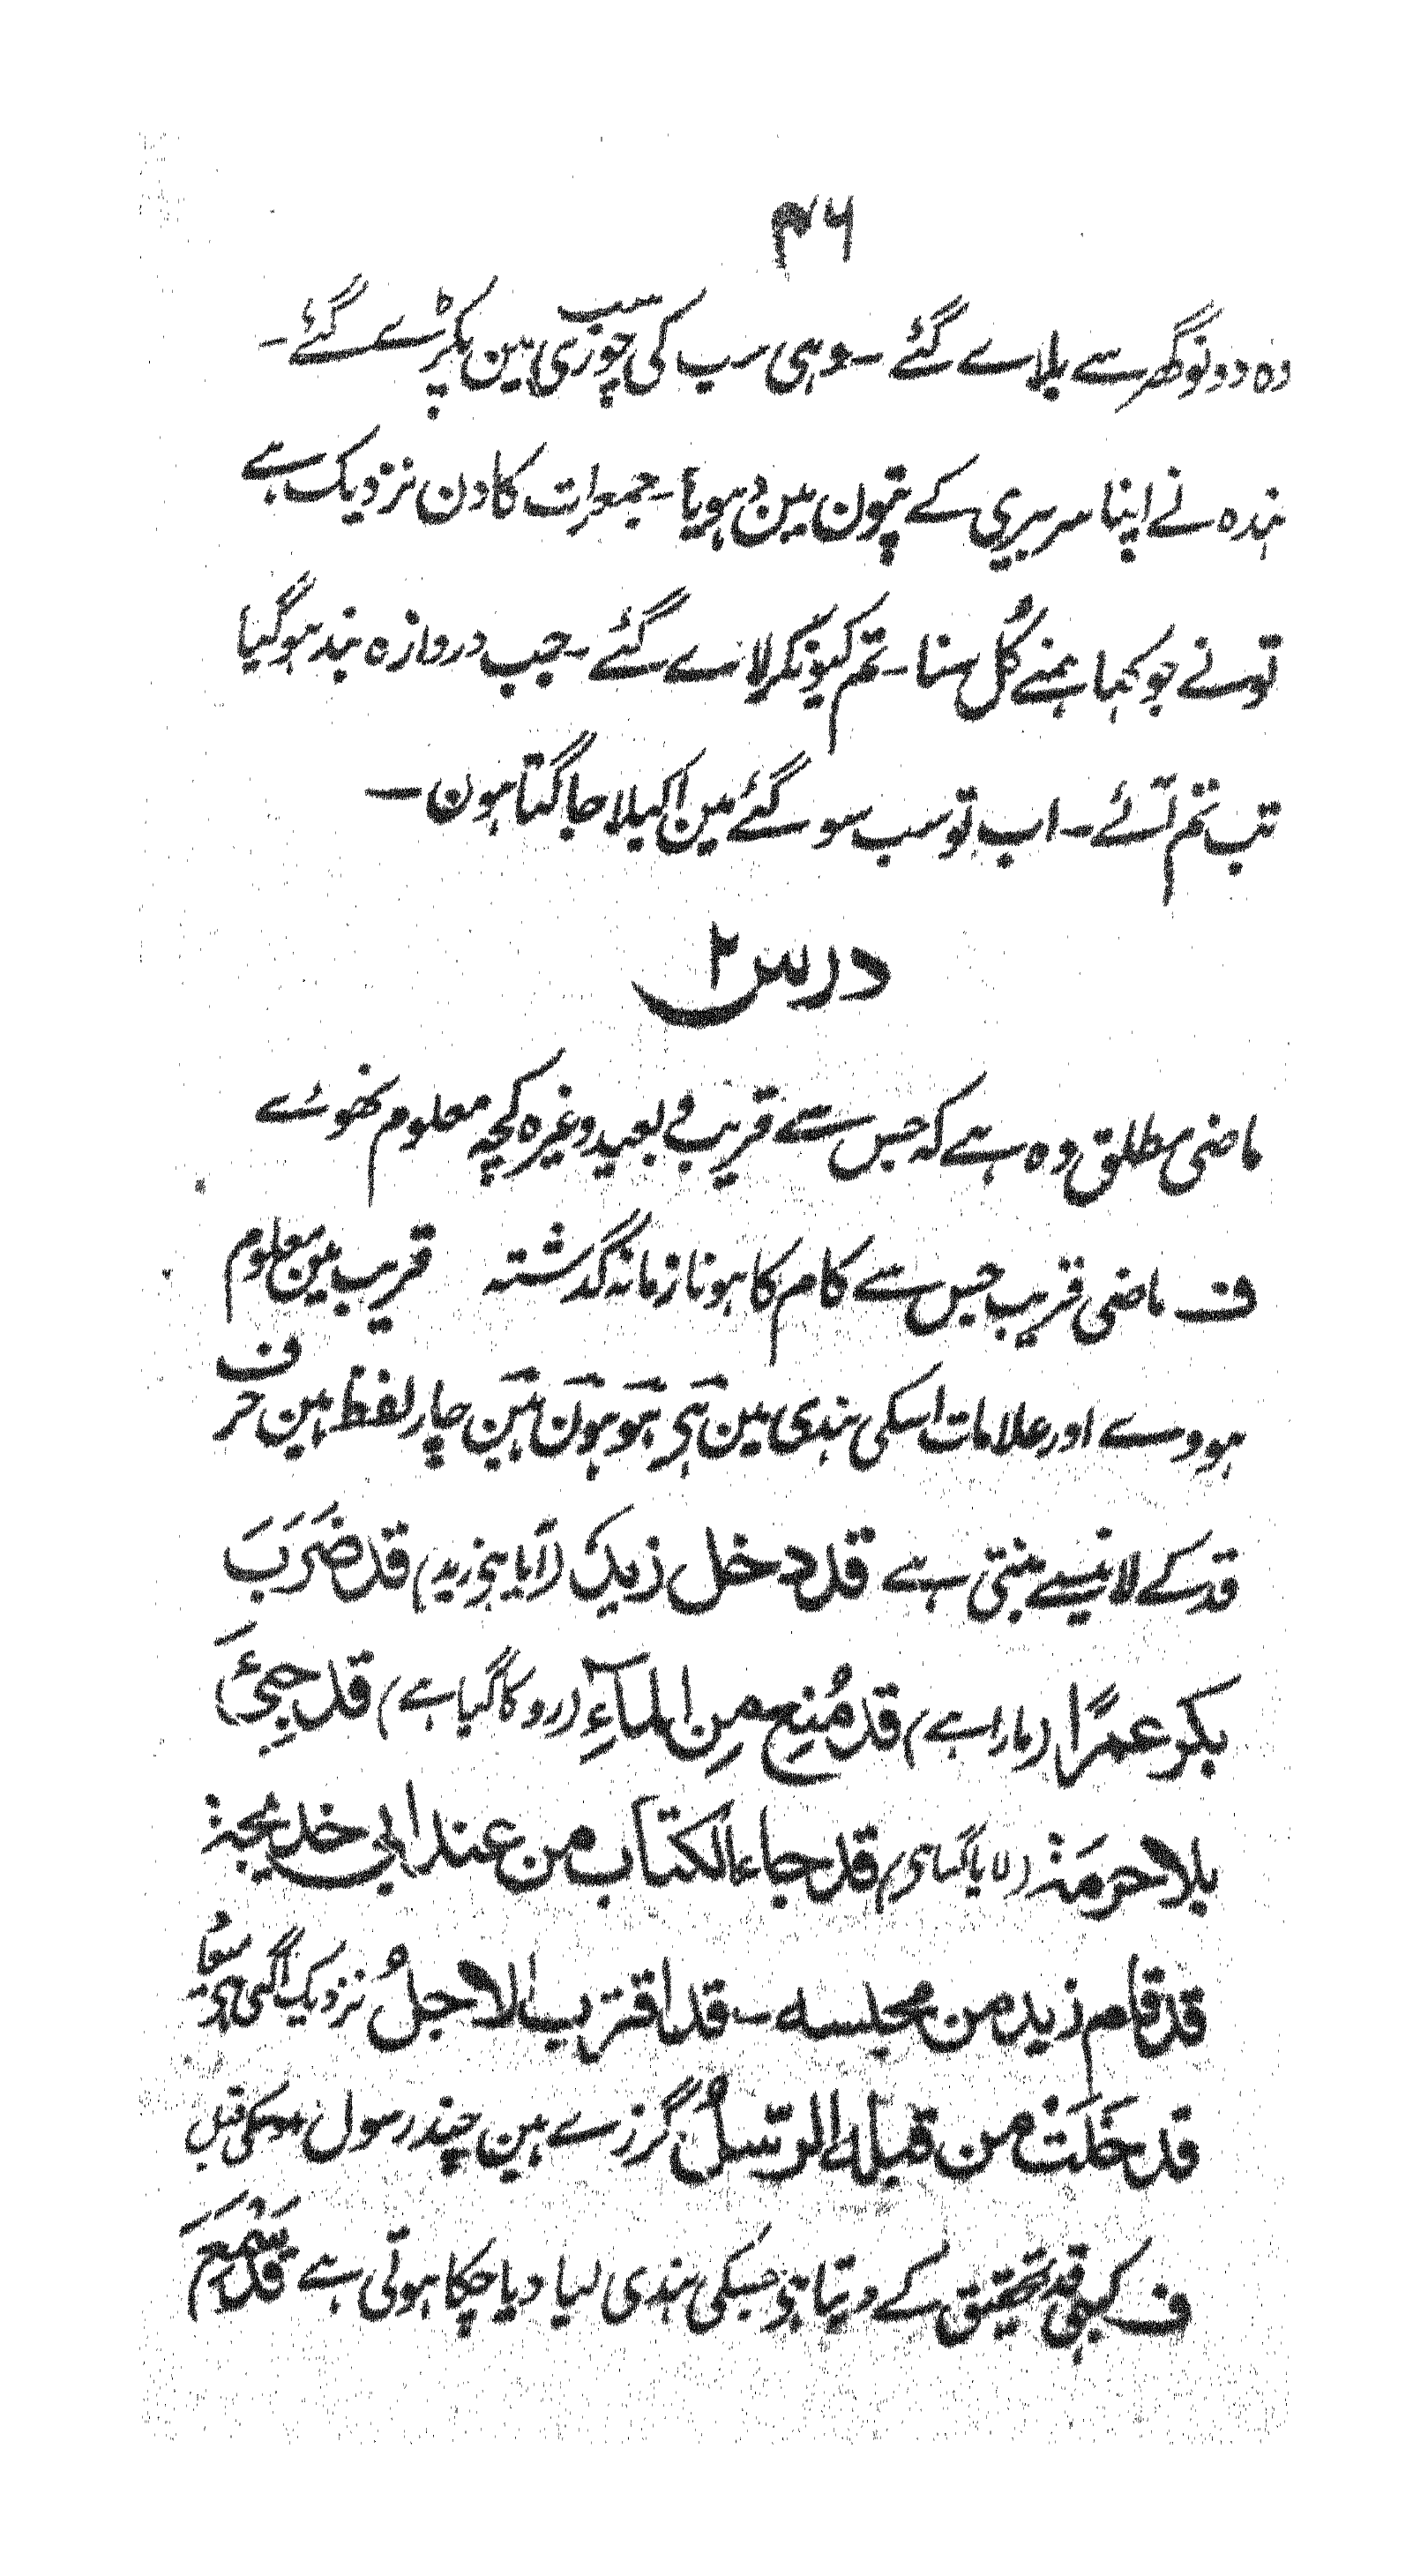 ۴۶
وہ دونو گھر سے بلاے گئے ۔ وہی سب کی چوری مین پکڑے گئے ۔
ہندہ نے اپنا سر بیری کے پتون مین دہویا ۔ جمعرات کا دن نزدیک ہے
تونے جو کہا ہمنے کُل سنا ۔ تم کیونکر لاے گئے ۔ جب دروازہ بند ہوگیا
تب تم آئے ۔ اب تو سب سو گئے مین اکیلا جاگتا ہون ۔
درس ۲
ماضی مطلق وہ ہے کہ جس سے قریب و بعید وغیرہ کچہ معلوم نھوئے
ف ماضی قریب جس سے کام کا ہونا زمانہ گذشتہ قریب مین معلوم
ہووے اور علامات اسکی ہندی مین ہَی ہَو ہَون ہَین چار لفظ ہین حرف
قد کے لانیسے بنتی ہے قد دخل زید (آیا ہی زید) قد ضَرَبَ
بکر عمرًا (مارا ہے) قد مُنِع مِن المآءِ (روکا گیا ہے) قد جِیئَ
بلا حرمَة (لایا گیا ہی) قد جاء الکتاب من عند ابی خدیجة
قد قام زید من مجلسه ۔ قد اقترب الاجلُ نزدیک آگئی ہی
قد خَلَتْ من قبله الرّسلُ گزرے ہین چند رسول قبل
ف کبھی قد تحقیق کے دیتا ہی جسکی ہندی لیا دیا چکا ہوتی ہے قد سَمِعَ